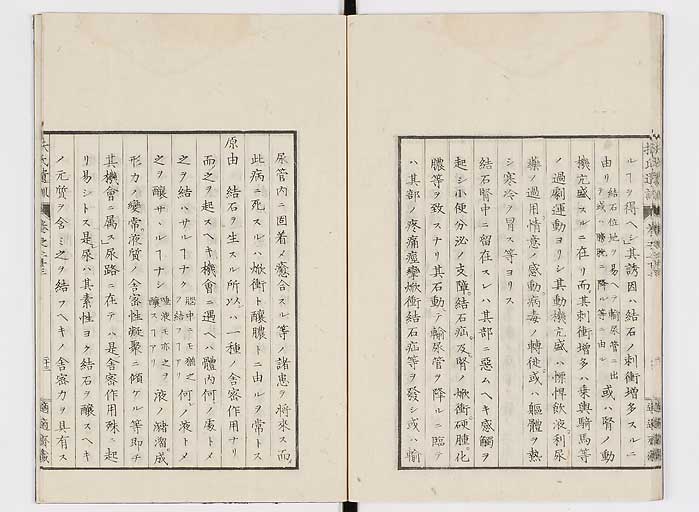 ルヿヲ得ヘシ其誘因ハ結石ノ刺衝增多スルニ
由リ結石位地ヲ易ヘテ輸尿管ニ出ヲ或ハ膀胱ニ降ル等ニ由ル或ハ腎ノ動
機亢盛スルニ在リ而其刺衝增多ハ乗輿騎馬等
ノ過劇運動ヨリシ其動機亢盛ハ慓悍飲液利尿
藥ノ過用情意ノ感動病毒ノ轉徙或ハ軀體ヲ熱
シ寒冷ヲ冒ス等ヨリス
結石腎中ニ留在スレハ其部ニ惡ムヘキ感觸ヲ
起シ小便分泌ノ支障結石疝及腎ノ焮衝硬腫化
膿等ヲ致スナリ其石動テ輸尿管ヲ降ルニ臨テ
ハ其部ノ疼痛痙攣焮衝結石疝等ヲ發シ或ハ輸
尿管内ニ固着メ癒合スル等ノ諸患ヲ將來ス而
此病ニ死スルハ焮衝ト釀膿トニ由ルヲ常トス
原由 結石ヲ生スル所以ハ一種ノ舎密作用ナリ
而之ヲ起スヘキ機會ニ遇ヘハ體内何ノ處トメ
之ヲ結ハサルヿナク腦中ニモ猶之ヲ結フヿアリ何ノ液トメ
之ヲ釀サヽルヿナシ唾液モ亦之ヲ釀スヿアリ液ノ潴溜成
形力ノ變常液質ノ舎密性凝聚ニ傾ケル等即チ
其機會ニ属ス尿路ニ在テハ是舎密作用殊ニ起
リ易シトス是尿ハ其素性ヨク結石ヲ釀スヘキ
ノ元質ヲ含ミ之ヲ結フヘキノ舎密力ヲ具有ス
扶氏遺訓 卷之十三
適適齋藏